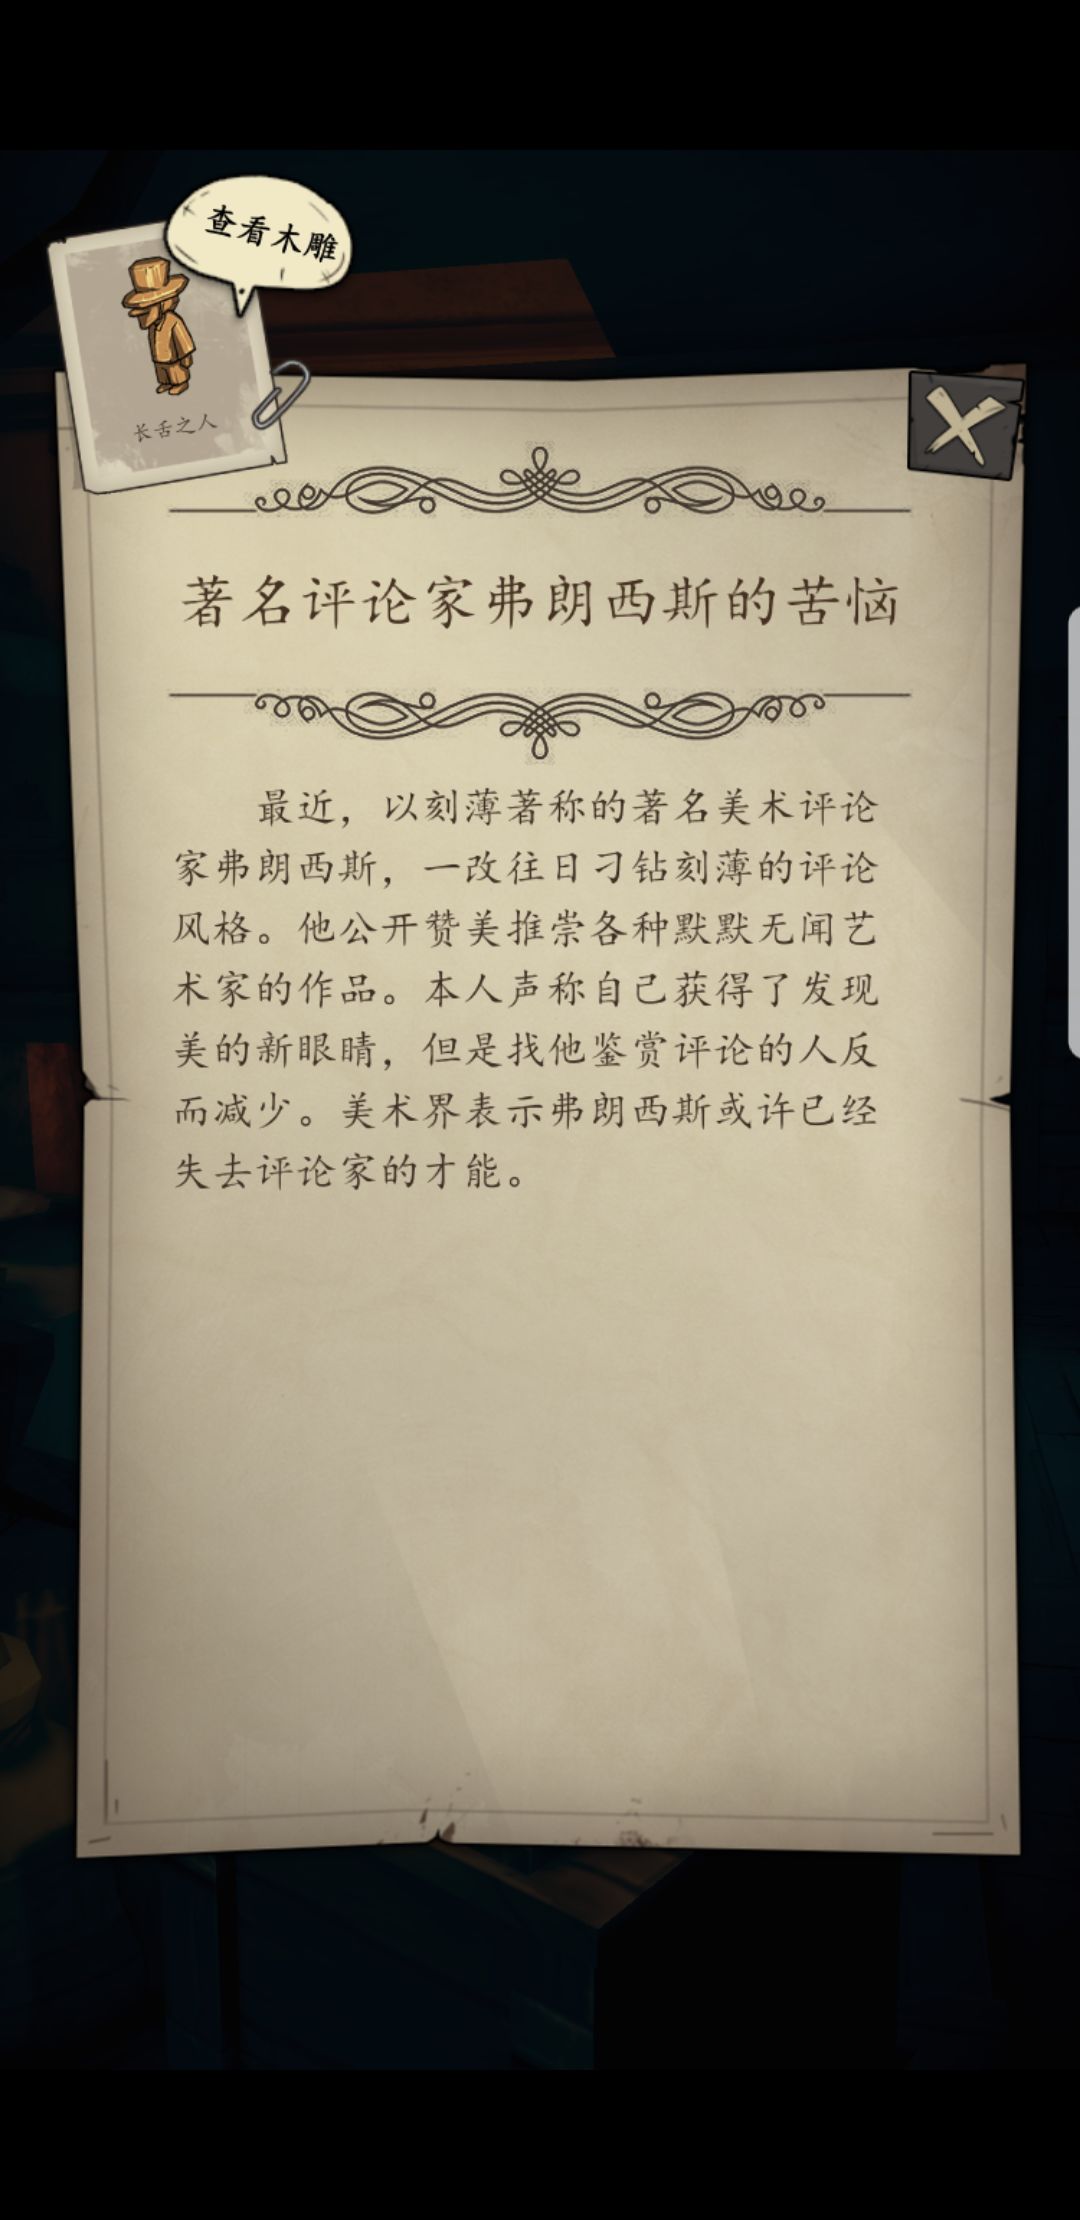 查看木雕
长舌之人
著名评论家弗朗西斯的苦恼
最近，以刻薄著称的著名美术评论
家弗朗西斯，一改往日刁钻刻薄的评论
风格。他公开赞美推崇各种默默无闻艺
术家的作品。本人声称自己获得了发现
美的新眼睛，但是找他鉴赏评论的人反
而减少。美术界表示弗朗西斯或许已经
失去评论家的才能。